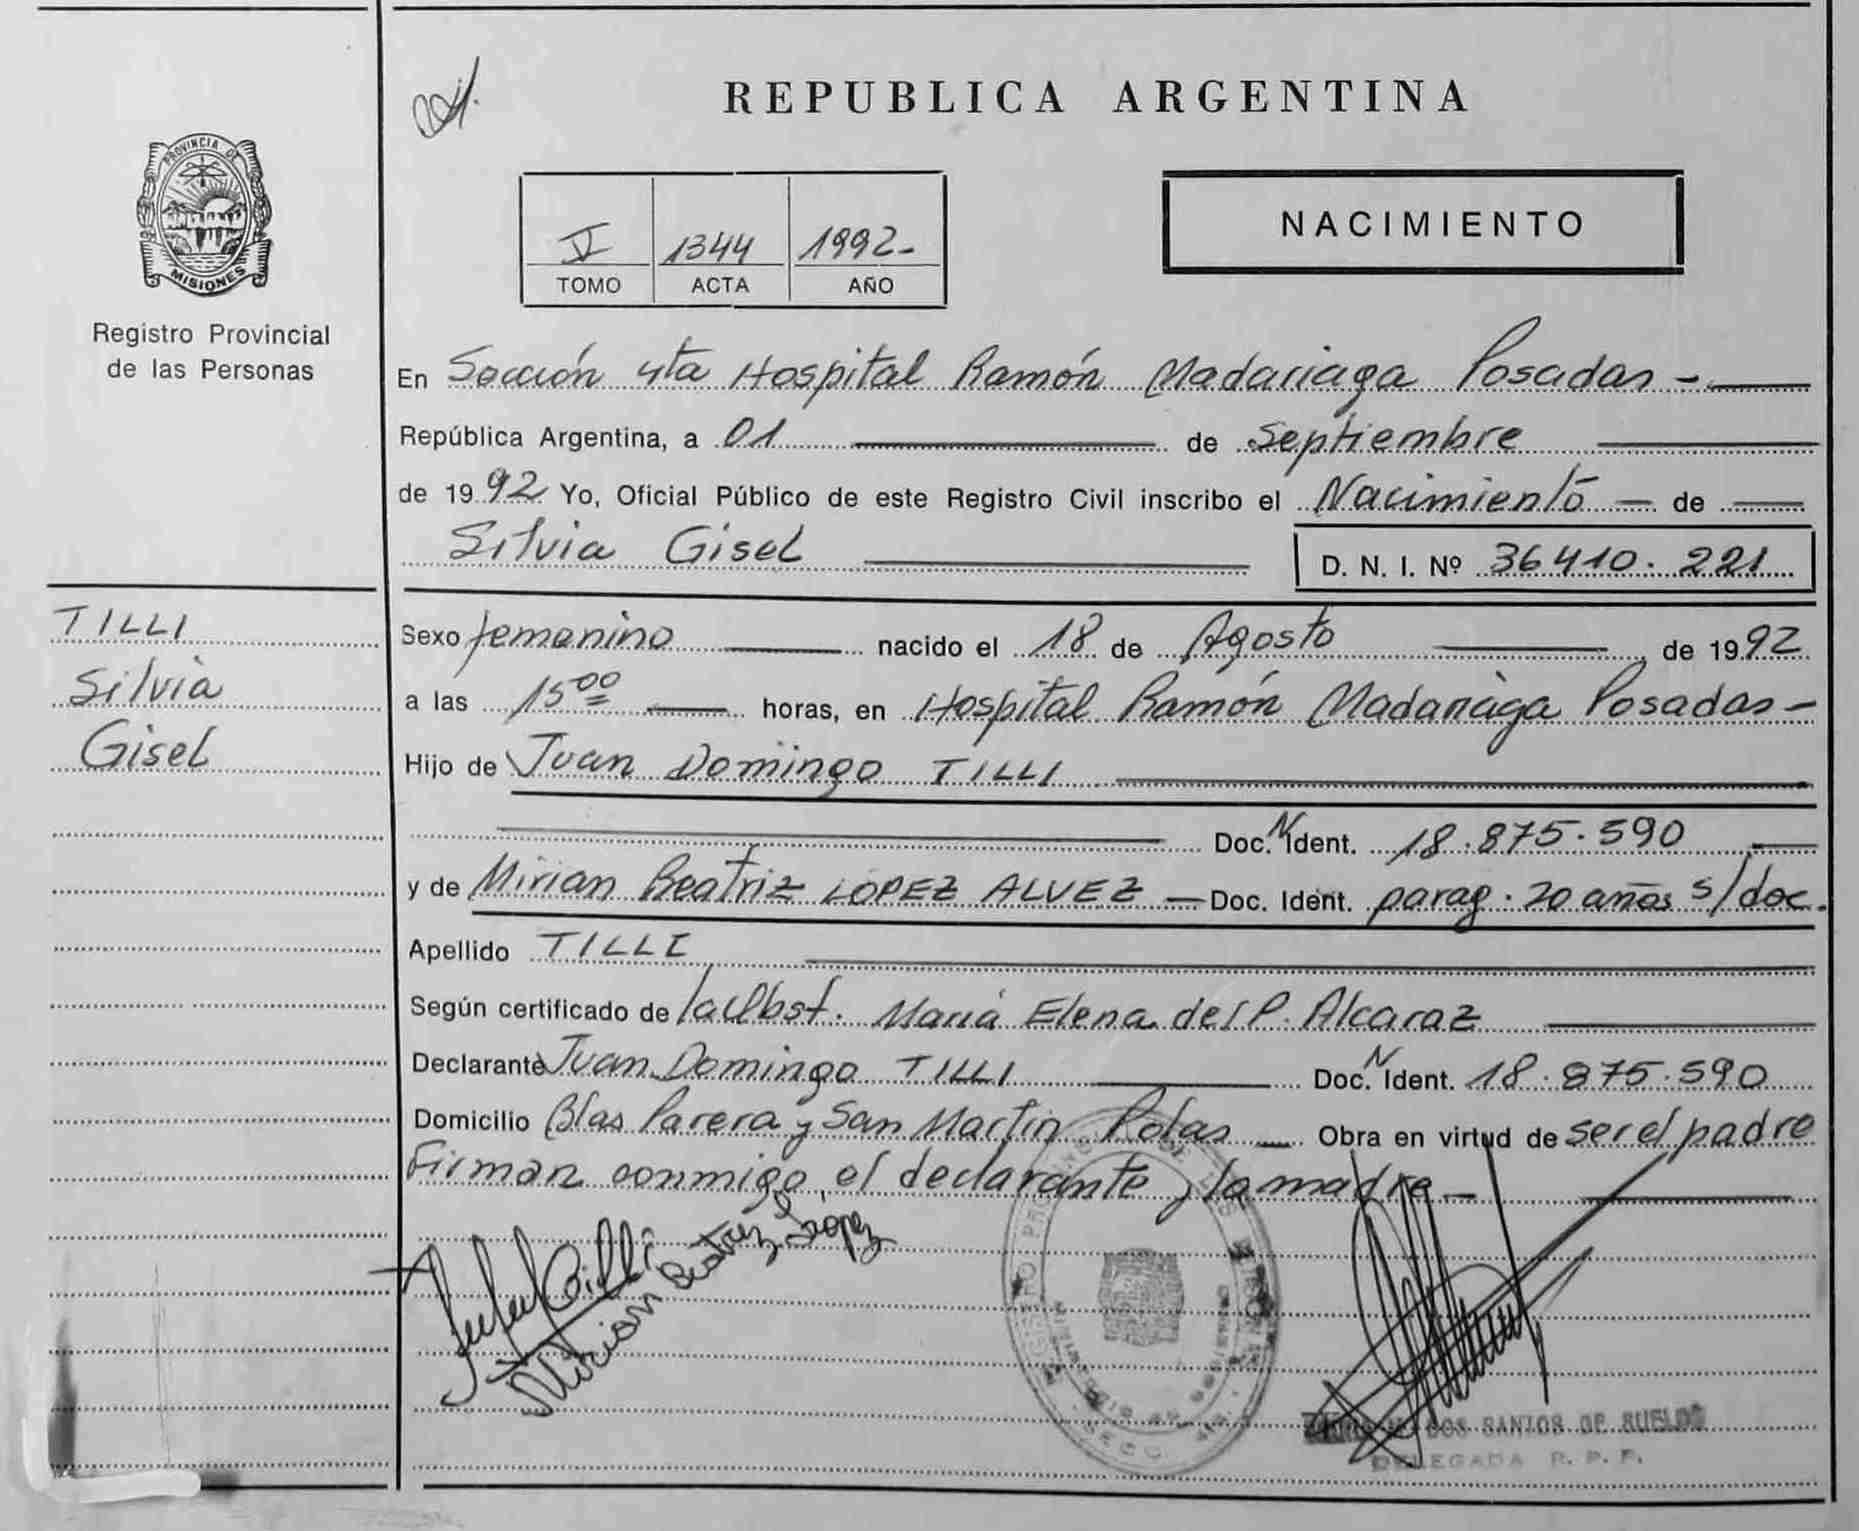 REPUBLICA ARGENTINA
PROVINCIA DE
MISIONES
Registro Provincial
de las Personas
V 1344 1992-
TOMO ACTA AÑO
NACIMIENTO
En Sección 4ta Hospital Ramón Madariaga Posadas -
República Argentina, a 01 de Septiembre
de 1992 Yo, Oficial Público de este Registro Civil inscribo el Nacimiento - de
Silvia Gisel D. N. I. Nº 36410.221
TILLI
Silvia
Gisel
Sexo femenino nacido el 18 de Agosto de 1992
a las 15 00 horas, en Hospital Ramón Madariaga Posadas -
Hijo de Juan Domingo TILLI
Doc. N Ident. 18.875.590
y de Mirian Beatriz LOPEZ ALVEZ - Doc. Ident. parag. 20 años s/doc.
Apellido TILLI
Según certificado de la Obst. María Elena del P. Alcaraz
Declarante Juan Domingo TILLI Doc. N Ident. 18.875.590
Domicilio Blas Parera y San Martin Pdas - Obra en virtud de ser el padre
Firman conmigo el declarante y la madre -
Mirian Beatriz Lopez
DOS SANTOS DE
DELEGADA R. P. P.